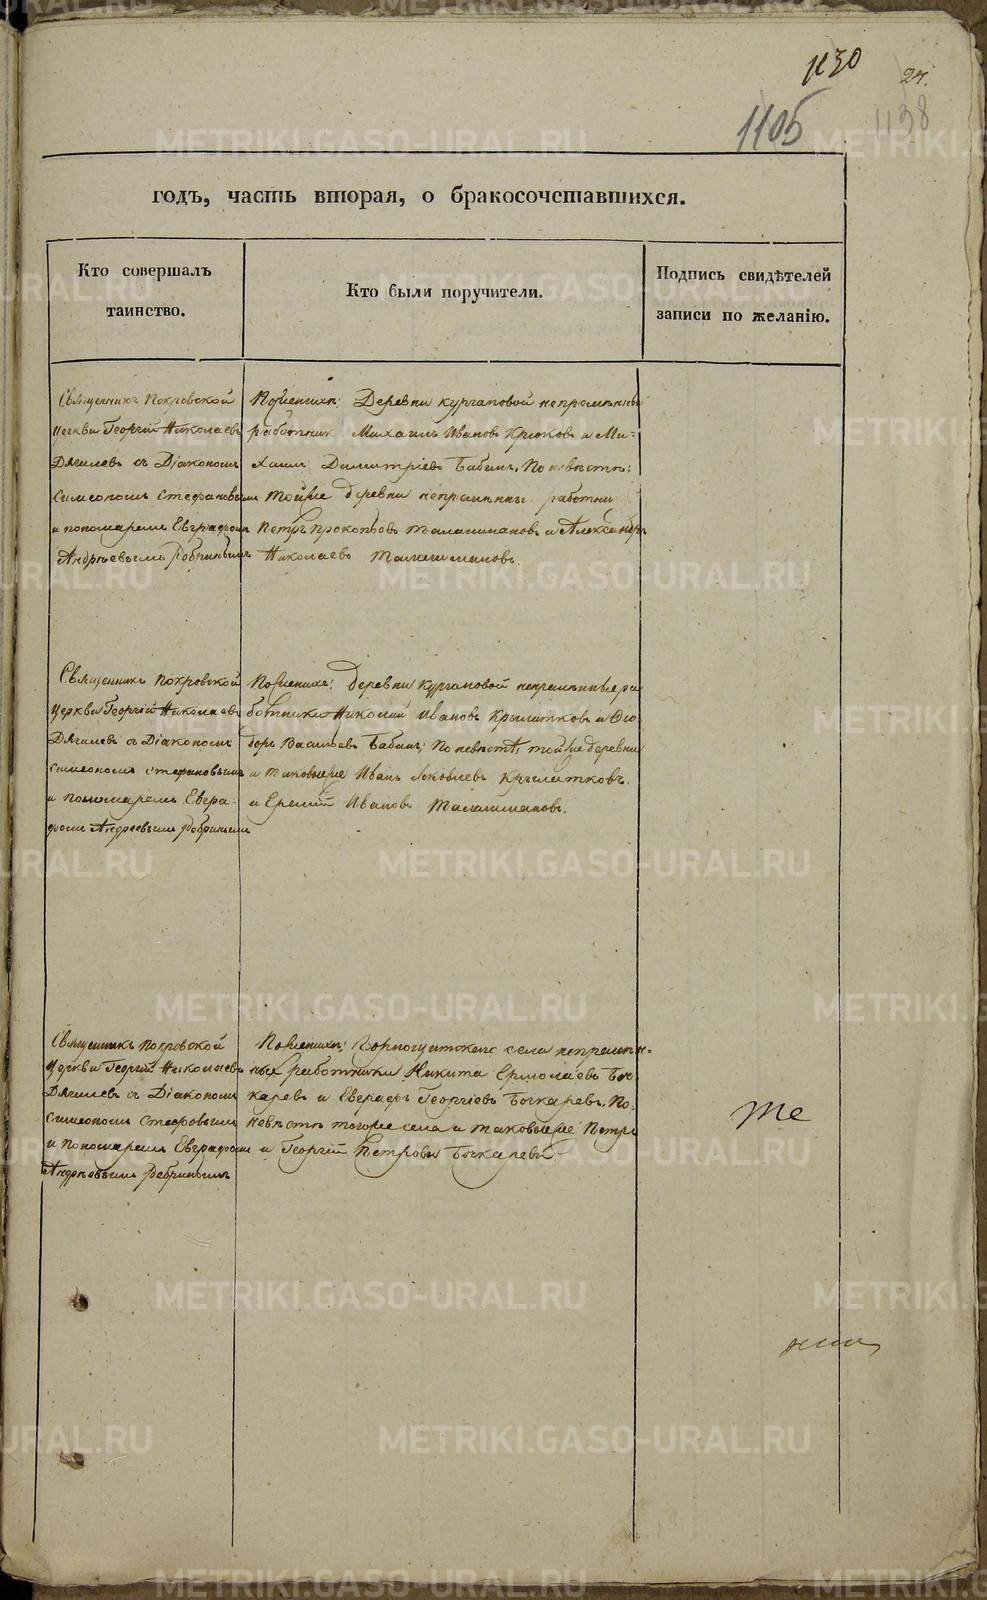 1130
27.
1105
1138
годъ, часть вторая, о бракосочетавшихся.
Кто совершалъ
таинство.
Кто были поручители.
Подпись свидѣтелей
записи по желанію.
Священникъ Покровской
церкви Георгій Николаевъ
Дягилевъ съ Діакономъ
Симеономъ Стефановымъ
и пономаремъ Евграфомъ
Андреевымъ
По женихѣ: Деревни Кургановой непременный
работник Михаилъ Ивановъ Крюковъ и Ми-
хаилъ Димитріевъ Бабинъ, По невѣстѣ:
той же деревни непременные работни
Петръ Прокопьевъ Талашмановъ и Александръ
Николаевъ Талашмановъ.
Священникъ Покровской
Церкви Георгій Николаевъ
Дягилевъ съ Діакономъ
Симеономъ Стефановымъ
и Пономаремъ Евгра-
фомъ Андреевымъ
По женихѣ: Деревни Кургановой непременные ра
ботники Николай Ивановъ Крылатковъ и Фео
доръ Васильевъ Бабинъ; По невѣстѣ, той же деревни
и таковые же Иванъ Яковлевъ Крылатковъ.
и Еремѣй Ивановъ Талашмановъ.
Священникъ Покровской
Церкви Георгій Николаевъ
Дягилевъ съ Діакономъ
Симеономъ
и Пономаремъ Евграфомъ
Андреевымъ
По женихѣ: Горнощитскаго села непремен-
ных работники Никита Ермолаевъ Боч
каревъ и Евграфъ Георгіевъ Бочкаревъ, По
невѣстѣ того же села и таковые же Петръ
и Георгій Петровы Бочкаревы.
те